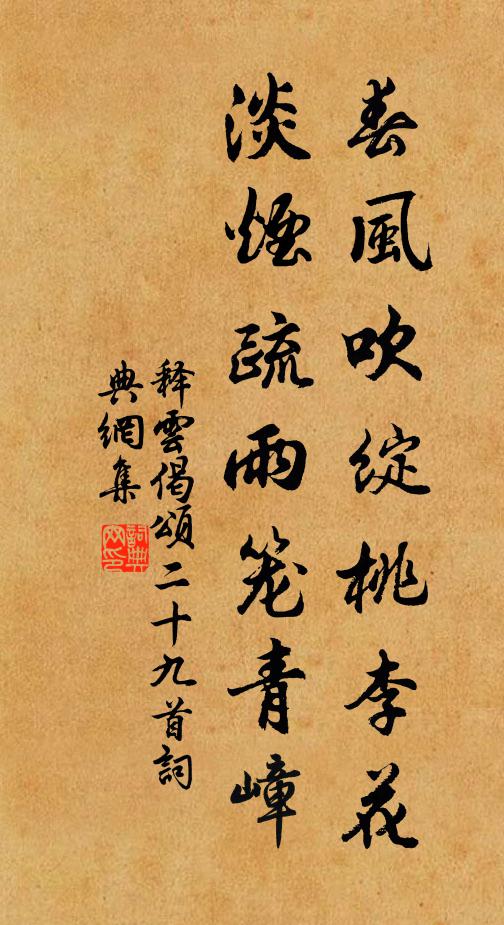 春風吹綻桃李花
淡煙疏雨笼青嶂
释雲偈頌二十九首詞
典網集
詞典
网印